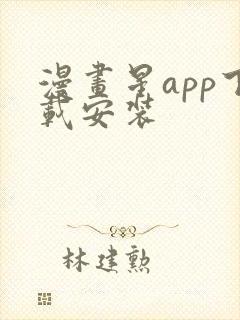 漫畫星app下
載安裝
林建勲